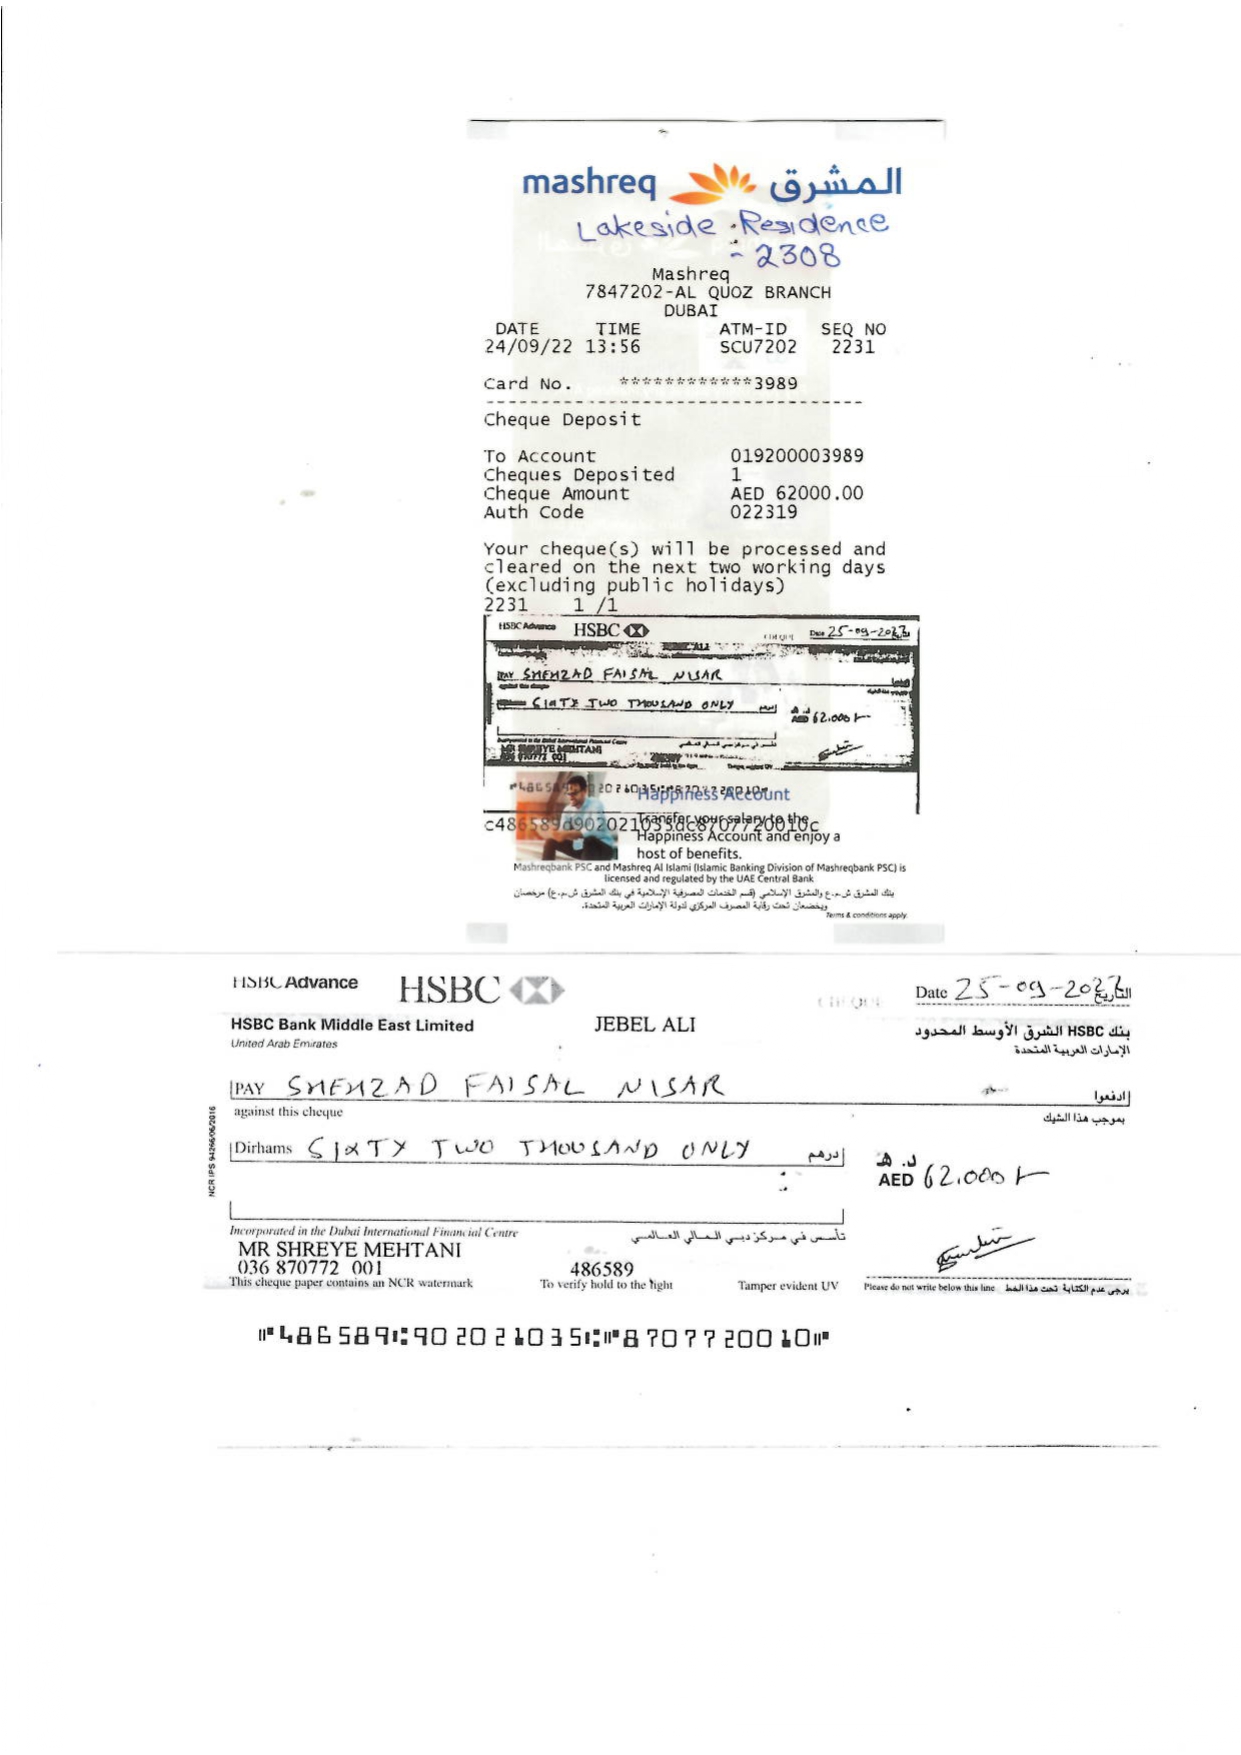 mashreq المشرق
Lakeside Residence
- 2308
Mashreq
7847202-AL QUOZ BRANCH
DUBAI
DATE TIME ATM-ID SEQ NO
24/09/22 13:56 SCU7202 2231
Card No. ************3989
Cheque Deposit
To Account 019200003989
Cheques Deposited 1
Cheque Amount AED 62000.00
Auth Code 022319
Your cheque(s) will be processed and
cleared on the next two working days
(excluding public holidays)
2231 1 /1
HSBC Advance HSBC Date 25-09-2022
PAY SHEHZAD FAISAL NISAR
SIXTY TWO THOUSAND ONLY درهم
د. هـ
AED 62.000/-
MR SHREYE MEHTANI
036 870772 001
Happiness Account
c486589d902021035dc870772001​0c
Transfer your salary to the
Happiness Account and enjoy a
host of benefits.
Mashreqbank PSC and Mashreq Al Islami (Islamic Banking Division of Mashreqbank PSC) is
licensed and regulated by the UAE Central Bank
بنك المشرق ش.م.ع والمشرق الإسلامي (قسم الخدمات المصرفية الإسلامية في بنك المشرق ش.م.ع) مرخصان
ويخضعان تحت رقابة المصرف المركزي لدولة الإمارات العربية المتحدة.
Terms & conditions apply
HSBC Advance HSBC CHEQUE Date 25-09-2022 التاريخ
HSBC Bank Middle East Limited JEBEL ALI بنك HSBC الشرق الأوسط المحدود
United Arab Emirates الإمارات العربية المتحدة
PAY SHEHZAD FAISAL NISAR ادفعوا
against this cheque بموجب هذا الشيك
Dirhams SIXTY TWO THOUSAND ONLY درهم
د. هـ
AED 62.000/-
NCR IPS 94266/06/2016
Incorporated in the Dubai International Financial Centre تأسس في مركز دبي المالي العالمي
MR SHREYE MEHTANI
036 870772 001 486589
This cheque paper contains an NCR watermark To verify hold to the light Tamper evident UV Please do not write below this line يرجى عدم الكتابة تحت هذا الخط
⑈486589⑆902021035⑆⑈870772001​0⑈